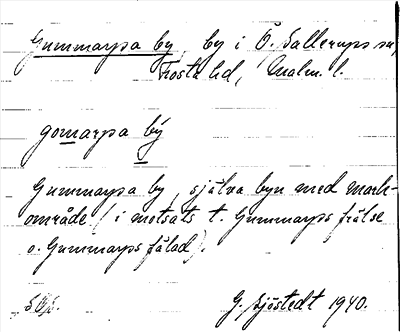 Gummarpa by, by i Ö. Sallerups sn,
Frosta hd, Malm. l.
gomarpa bý
Gummarpa by, själva byn med mark-
område (i motsats t. Gummarps frälse
o. Gummarps fälad).
G. Sjöstedt 1940.